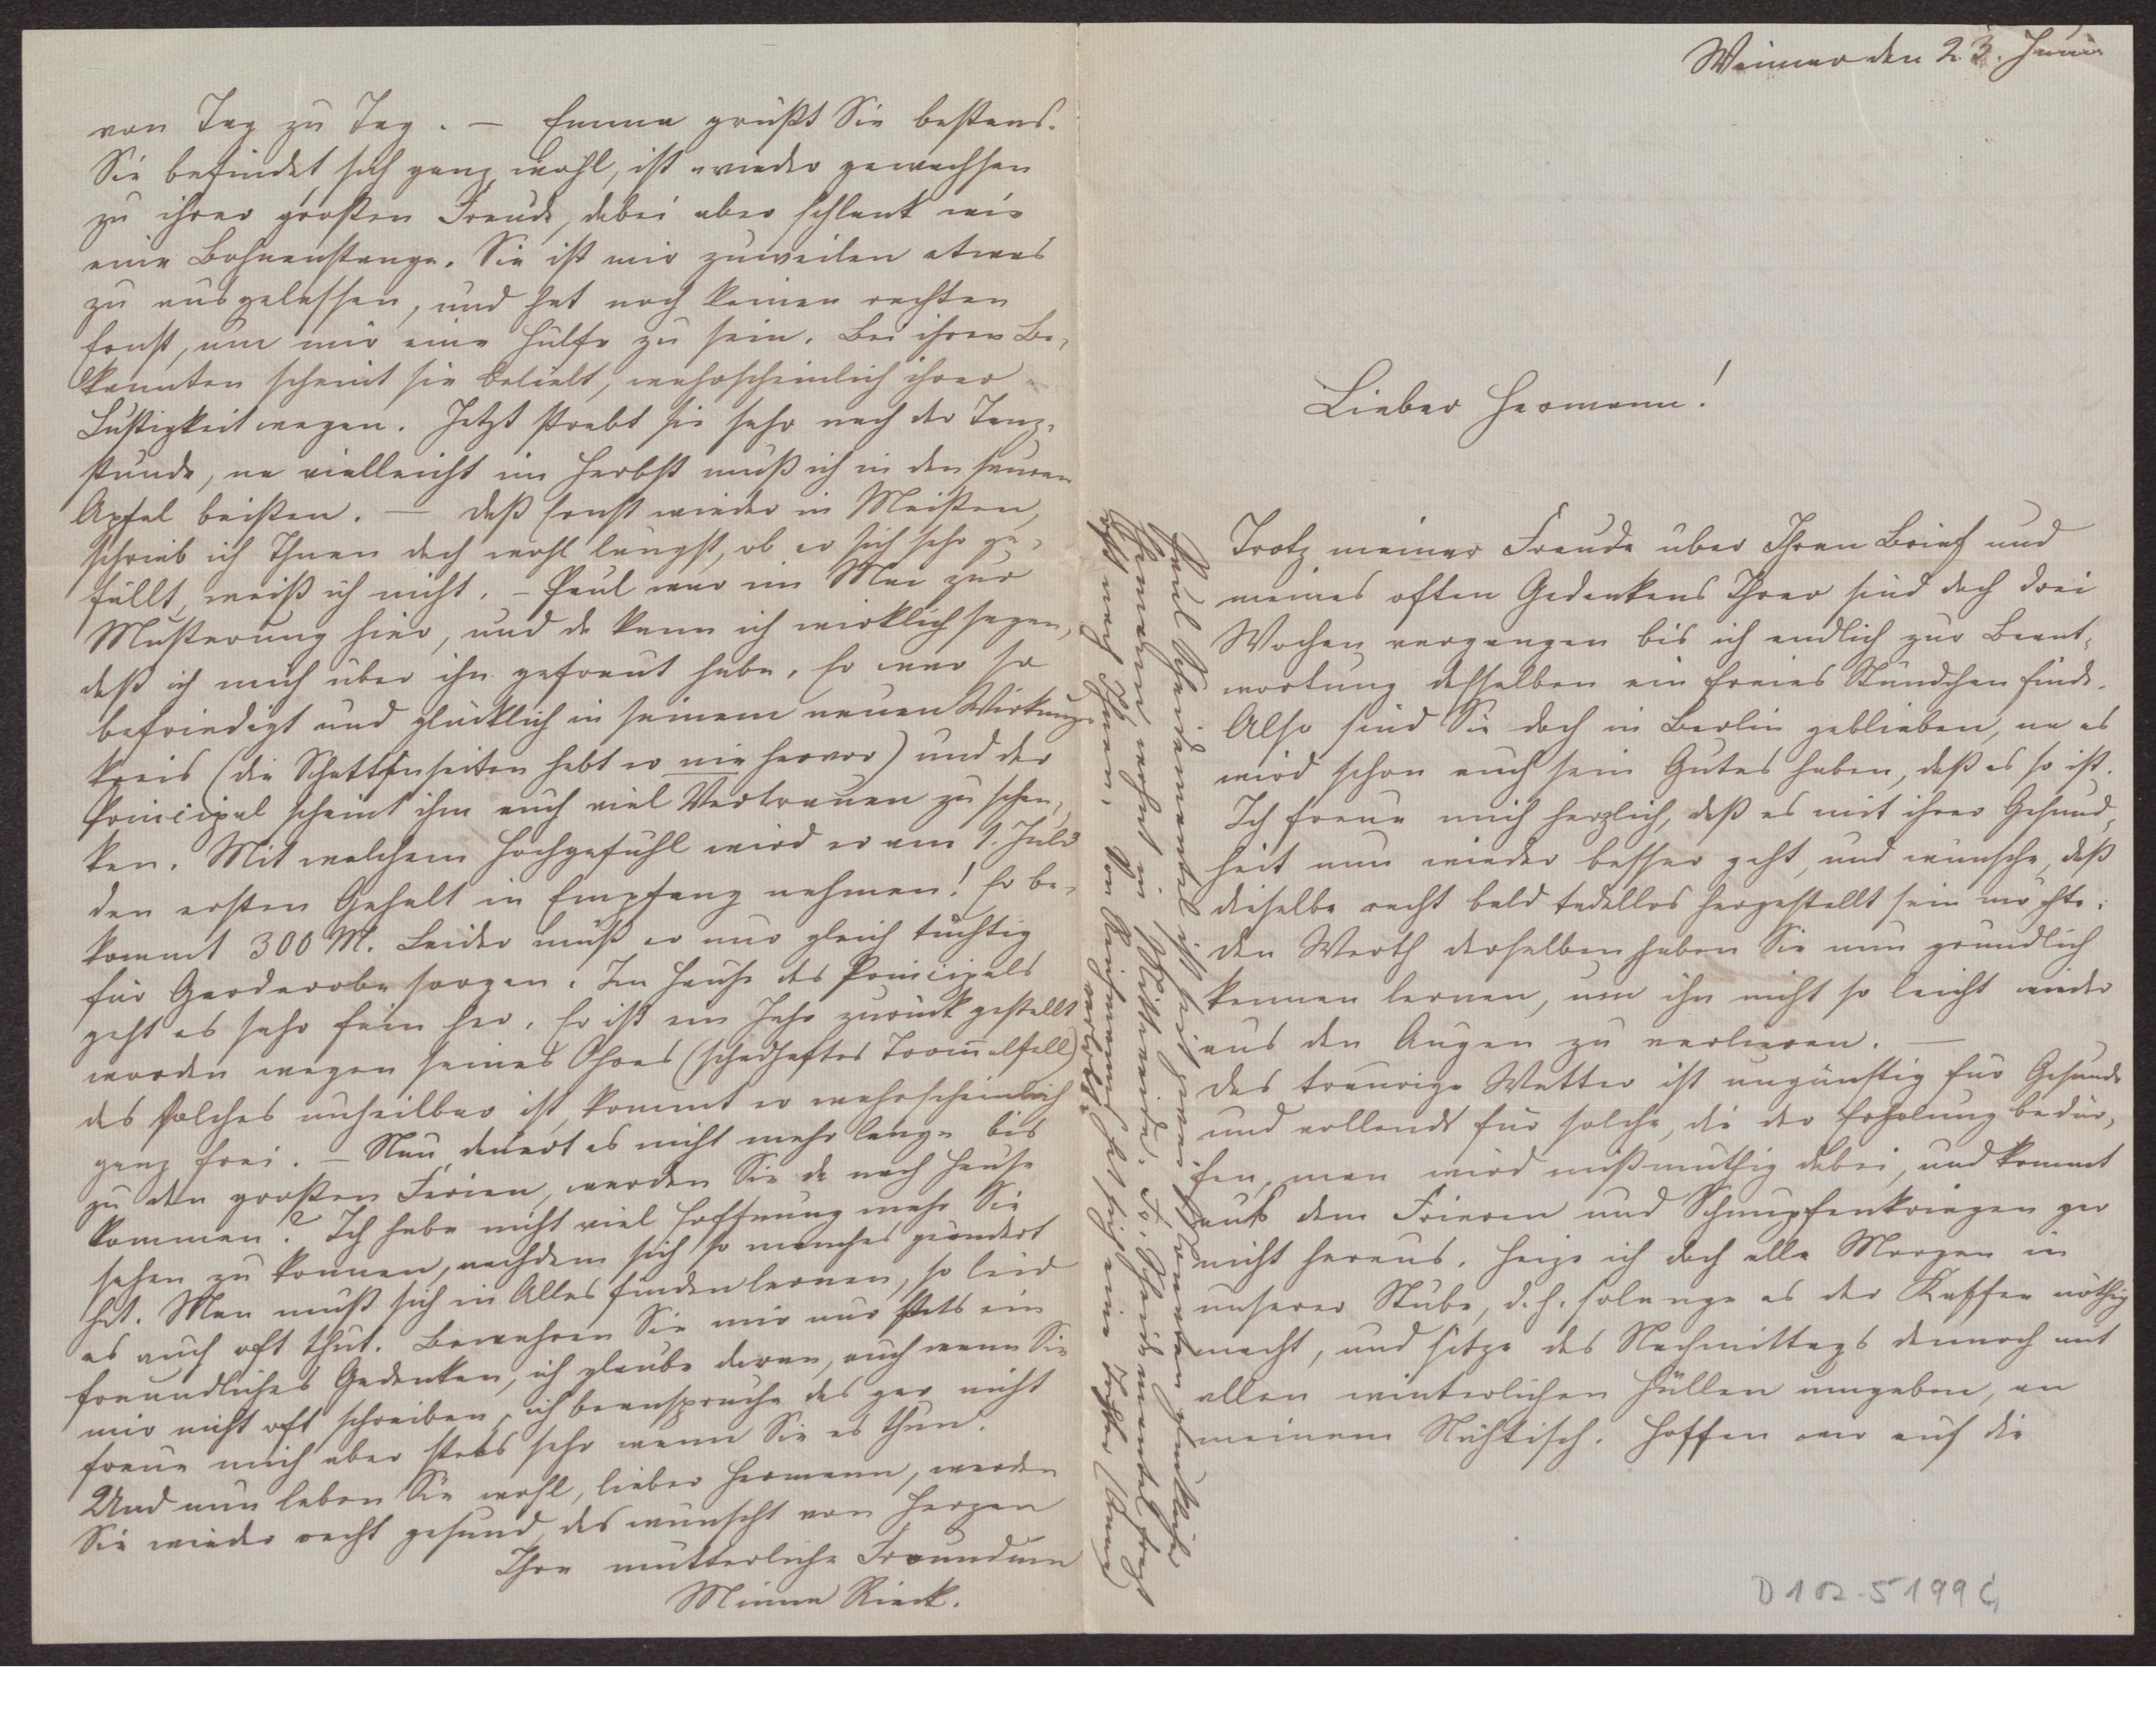 Weimar den 23. Juni
Lieber Hermann!
Trotz meiner Freude über Ihren Brief und
meines often Gedenkens Ihrer sind doch drei
Wochen vergangen bis ich endlich zur Beant-
wortung desselben ein freies Stündchen finde.
Also sind Sie doch in Berlin geblieben, na es
wird schon auch sein Gutes haben, daß es so ist.
Ich freue mich herzlich, daß es mit ihrer Gesund-
heit nun wieder besser geht, und wünsche, daß
dieselbe recht bald tadellos hergestellt sein möchte.
den Werth derselben haben Sie nun gründlich
kennen lernen, um ihn nicht so leicht wieder
aus den Augen zu verlieren. —
Das traurige Wetter ist ungünstig für Gesunde
und vollends für solche, die der Erholung bedür-
fen, man wird mißmuthig dabei, und kommt
aus dem Frieren und Schnupfenkriegen gar
nicht heraus. Heize ich doch alle Morgen in
unserer Stube, d. h. solange es der Kaffee nöthig
macht, und sitze des Nachmittags dennoch mit
allen winterlichen Hüllen umgeben, an
meinem Nähtisch. Hoffen wir auf die
von Tag zu Tag. — Emma grüßt Sie bestens.
Sie befindet sich ganz wohl, ist wieder gewachsen
zu ihrer großen Freude, dabei aber schlank wie
eine Bohnenstange. Sie ist mir zuweilen etwas
zu ausgelassen, und hat noch keinen rechten
Ernst, um mir eine Hülfe zu sein. Bei ihren Be-
kannten scheint sie beliebt, wahrscheinlich ihrer
Lustigkeit wegen. Jetzt strebt sie sehr nach der Tanz-
stunde, na vielleicht im Herbst muß ich in den sauren
Apfel beißen. — Daß Ernst wieder in Meißen,
schrieb ich Ihnen doch wohl längst, ob es sich sehr ge-
fällt, weiß ich nicht. — Paul war im Mai zur
Musterung hier, und da kann ich wirklich sagen,
daß ich mich über ihn gefreut habe. Er war so
befriedigt und glücklich in seinem neuen Wirkungs-
kreis (die Schattenseiten hebt er nie hervor) und der
Principal scheint ihm auch viel Vertrauen zu schen-
ken. Mit welchem Hochgefühl wird er am 1. Juli
den ersten Gehalt in Empfang nehmen! Er be-
kommt 300 M. Leider muß er nur gleich tüchtig
für Garderobe sorgen. Im Hause des Principals
geht es sehr fein her. Er ist ein Jahr zurück gestellt
worden wegen seines Ohres (schadhaftes Trommelfell)
das solches unheilbar ist, kommt er wahrscheinlich
ganz frei. — Nun dauert es nicht mehr lange bis
zu den großen Ferien, werden Sie da nach Hause
kommen? Ich habe nicht viel Hoffnung mehr Sie
sehen zu können, nachdem sich so manches geändert
hat. Man muß sich in Alles finden lernen, so leid
es auch oft thut. Bewahren Sie mir nur stets ein
freundliches Gedenken, ich glaube daran, auch wenn Sie
mir nicht oft schreiben, ich beanspruche das gar nicht
freue mich aber stets sehr wenn Sie es thun.
Und nun leben Sie wohl, lieber Hermann, werden
Sie wieder recht gesund, das wünscht von Herzen
Ihre mütterliche Freundinn
Minna Rieck.
ist seit zwei Monaten glücklicher
fragt
oft nach Ihnen. Von
D102-5199G